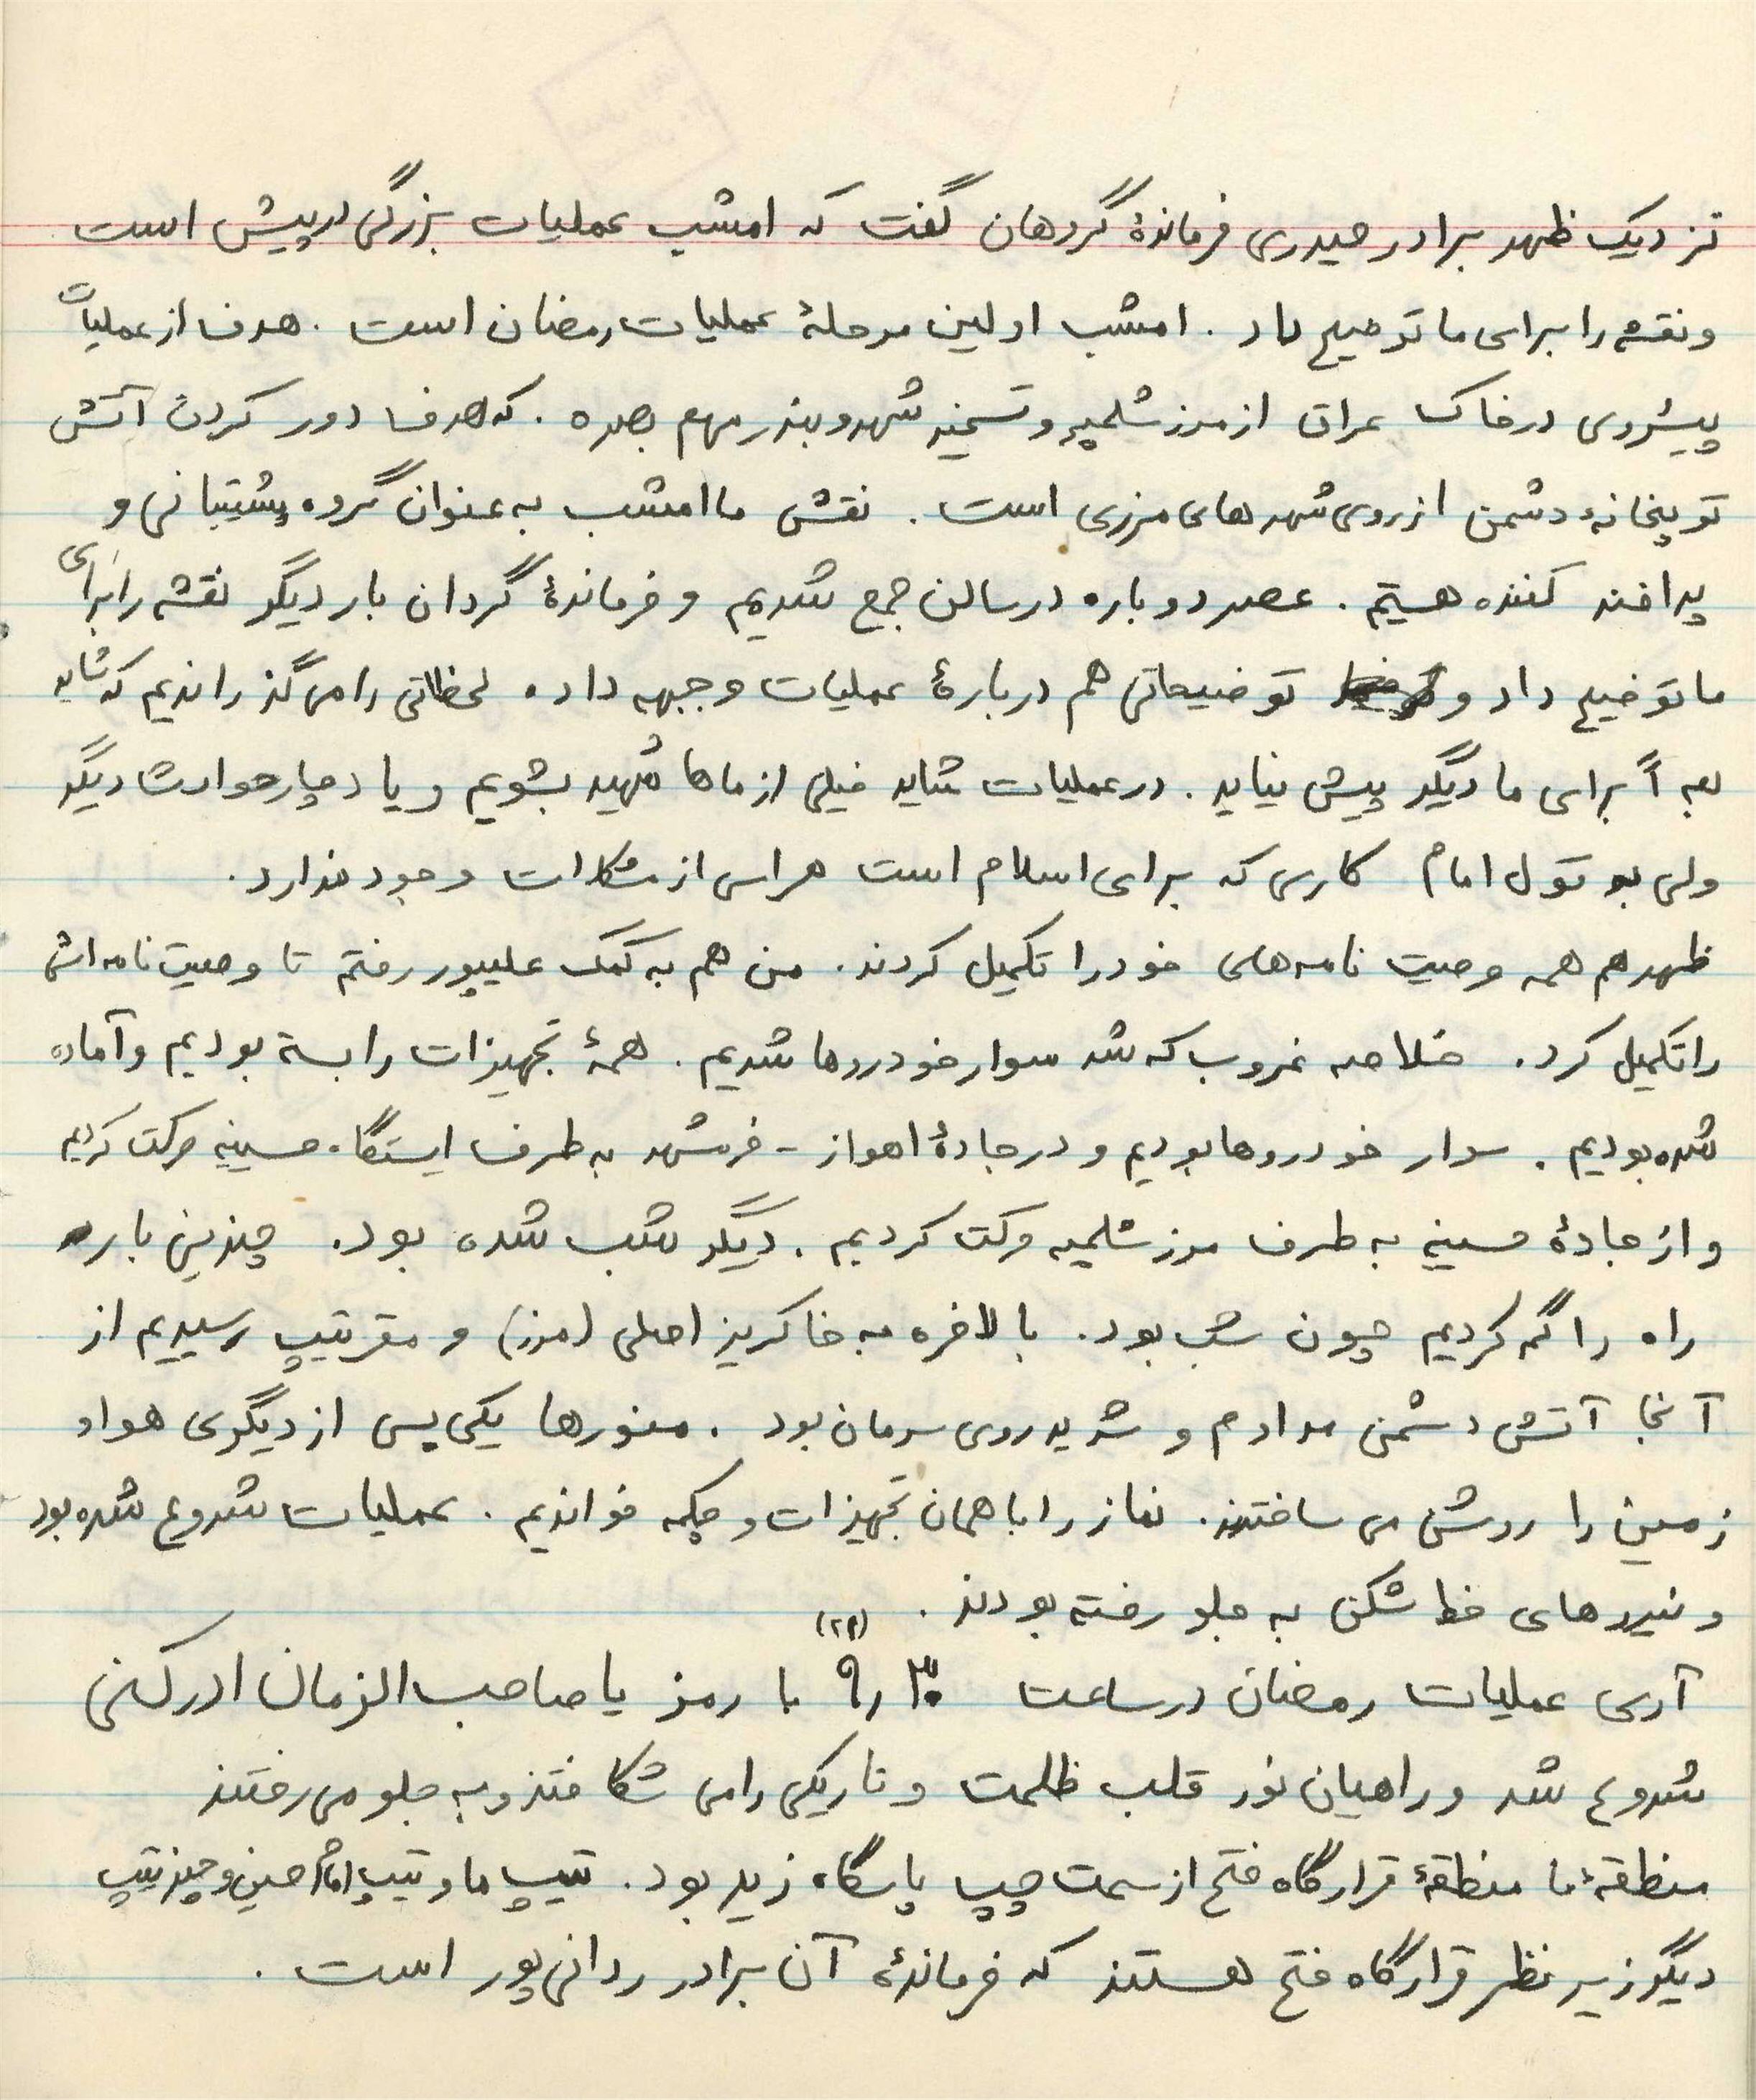 نزدیک ظهر برادر حیدری فرماندهٔ گردهان گفت که امشب عملیات بزرگی در پیش است
و نقشه را برای ما توضیح داد. امشب اولین مرحلهٔ عملیات رمضان است. هدف از عملیات
پیشروی در خاک عراق از مرز شلمچه و تسخیر شهر و بندر مهم بصره. که هدف دور کردن آتش
توپخانهٔ دشمن از روی شهرهای مرزی است. نقش ما امشب به عنوان گروه پشتیبانی و
پدافند کننده هستیم. عصر دوباره در سالن جمع شدیم و فرماندهٔ گردان بار دیگر نقشه را برای
ما توضیح داد و توضیحاتی هم دربارهٔ عملیات و جبهه داد. لحظاتی را می گذراندیم که شاید
بعداً برای ما دیگر پیش نیاید. در عملیات شاید خیلی از ماها شهید بشویم و یا دچار حوادث دیگر
ولی به قول امام کاری که برای اسلام است هراس از مشکلات وجود ندارد.
ظهر هم همه وصیت نامه‌های خود را تکمیل کردند. من هم به کمک علیپور رفتم تا وصیت نامه‌اش
را تکمیل کرد. خلاصه غروب که شد سوار خودروها شدیم. همهٔ تجهیزات را بسته بودیم و آماده
شده بودیم. سوار خودروها بودیم و در جادهٔ اهواز - خرمشهر به طرف ایستگاه حسینیه حرکت کردیم
و از جادهٔ حسینیه به طرف مرز شلمچه حرکت کردیم. دیگر شب شده بود. چندین بار
راه را گم کردیم چون شب بود. بالاخره به خاکریز اصلی (مرز) و مقر تیپ رسیدیم از
آنجا آتش دشمن مدادم و شدید روی سرمان بود. منورها یکی پس از دیگری هوا و
زمین را روشن می ساختند. نماز را با همان تجهیزات و چکمه خواندیم. عملیات شروع شده بود
و نیروهای خط شکن به جلو رفته بودند. (۲۴)
آری عملیات رمضان در ساعت ۹٫۳۰ با رمز یا صاحب الزمان ادرکنی
شروع شد و راهیان نور قلب ظلمت و تاریکی را می شکافتند و به جلو می رفتند
منطقهٔ ما منطقهٔ قرارگاه فتح از سمت چپ پاسگاه زید بود. تیپ ما و تیپ امام حسین و چند تیپ
دیگر زیر نظر قرارگاه فتح هستند که فرماندهٔ آن برادر ردانی پور است.